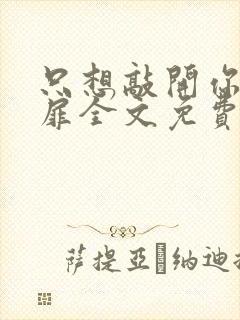 只想敲開你
扉全文免費
萨提亞·納迪拉